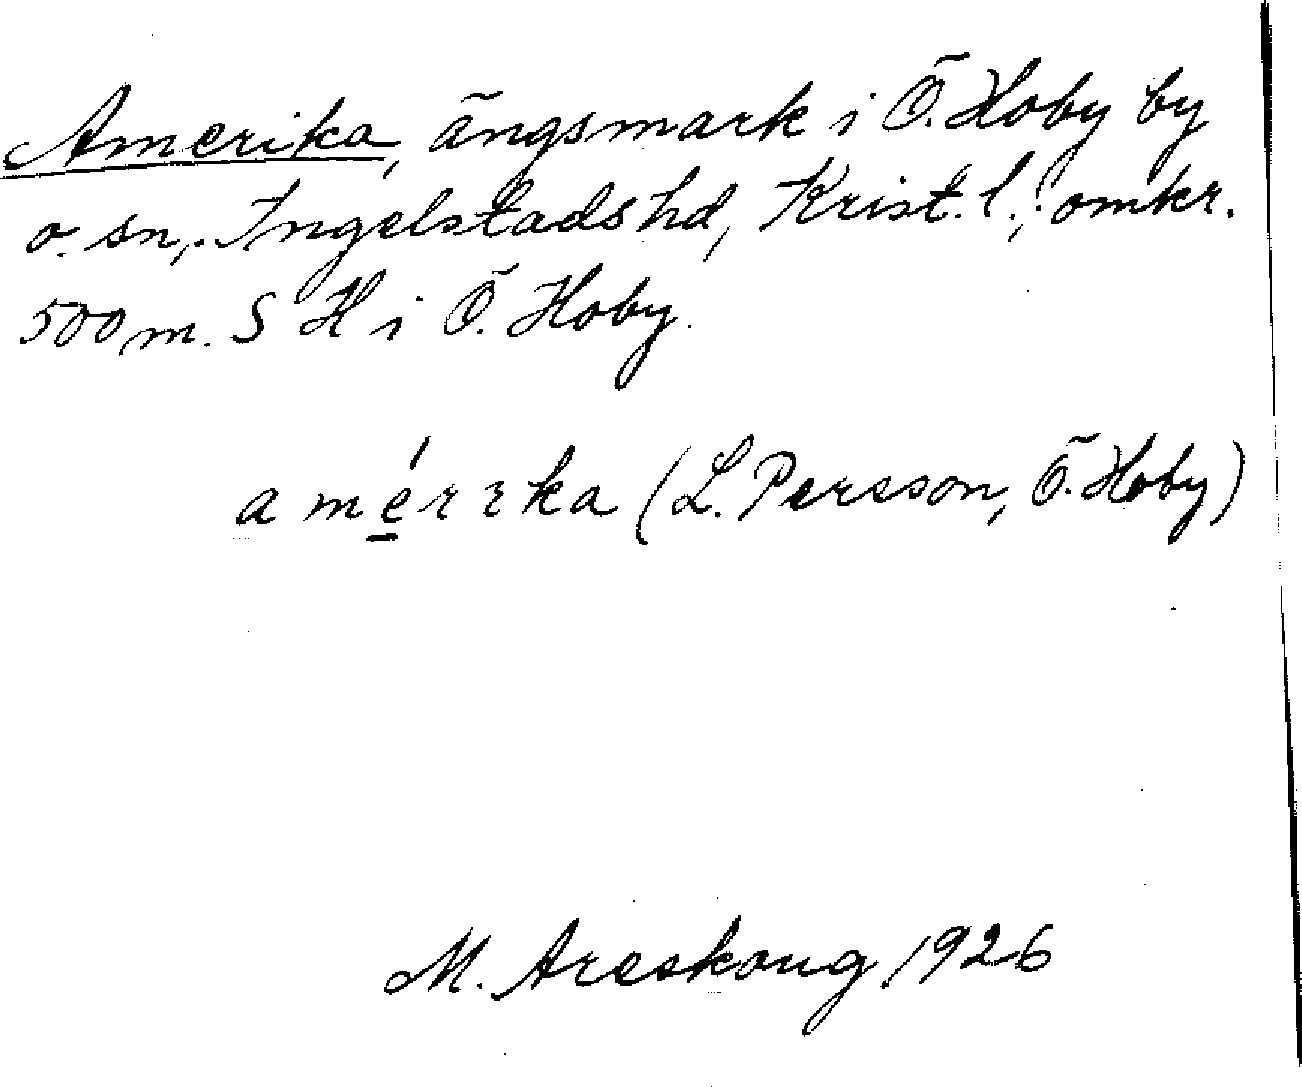 Amerika, ängsmark i Ö. Hoby by
o. sn, Ingelstads hd, Krist. l., omkr.
500 m. S H i Ö. Hoby.
amérıka (L. Persson, Ö. Hoby)
M. Areskoug 1926